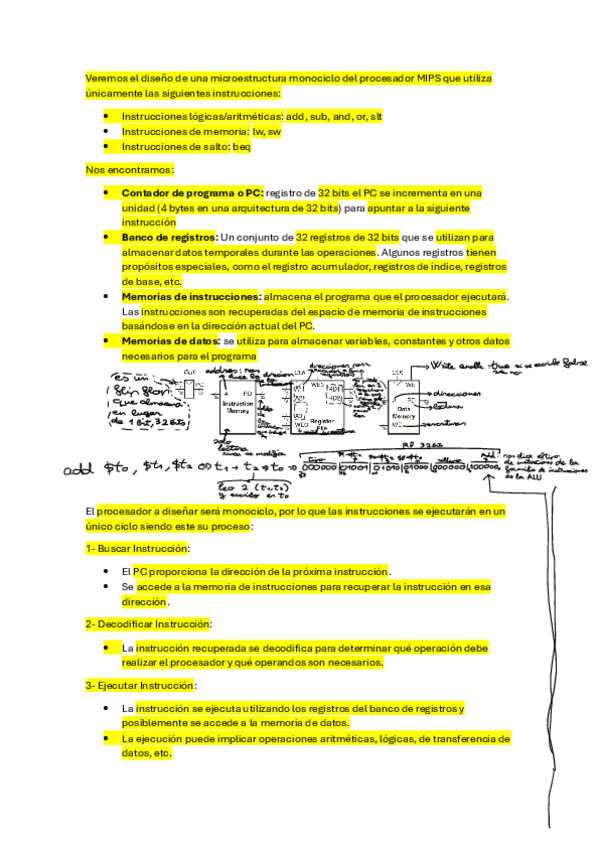 Veremos el diseño de una microestructura monociclo del procesador MIPS que utiliza
únicamente las siguientes instrucciones:
• Instrucciones lógicas/aritméticas: add, sub, and, or, slt
• Instrucciones de memoria: lw, sw
• Instrucciones de salto: beq
Nos encontramos:
• Contador de programa o PC: registro de 32 bits el PC se incrementa en una
unidad (4 bytes en una arquitectura de 32 bits) para apuntar a la siguiente
instrucción
• Banco de registros: Un conjunto de 32 registros de 32 bits que se utilizan para
almacenar datos temporales durante las operaciones. Algunos registros tienen
propósitos especiales, como el registro acumulador, registros de índice, registros
de base, etc.
• Memorias de instrucciones: almacena el programa que el procesador ejecutará.
Las instrucciones son recuperadas del espacio de memoria de instrucciones
basándose en la dirección actual del PC.
• Memorias de datos: se utiliza para almacenar variables, constantes y otros datos
necesarios para el programa
es un
flip flop
que almacena
en lugar
de 1 bit, 32 bits
CLK
A RD
Instruction
Memory
CLK
WE3
Register
File
CLK
WE
A RD
Data
Memory
WD
direcciones
lectura
escritura
solo
lectura
RD 32 bits
add $t0, $t1, $t2
leo 2 (t1, t2)
y escribo en t0
de la ALU
El procesador a diseñar será monociclo, por lo que las instrucciones se ejecutarán en un
único ciclo siendo este su proceso:
1- Buscar Instrucción:
• El PC proporciona la dirección de la próxima instrucción.
• Se accede a la memoria de instrucciones para recuperar la instrucción en esa
dirección.
2- Decodificar Instrucción:
• La instrucción recuperada se decodifica para determinar qué operación debe
realizar el procesador y qué operandos son necesarios.
3- Ejecutar Instrucción:
• La instrucción se ejecuta utilizando los registros del banco de registros y
posiblemente se accede a la memoria de datos.
• La ejecución puede implicar operaciones aritméticas, lógicas, de transferencia de
datos, etc.